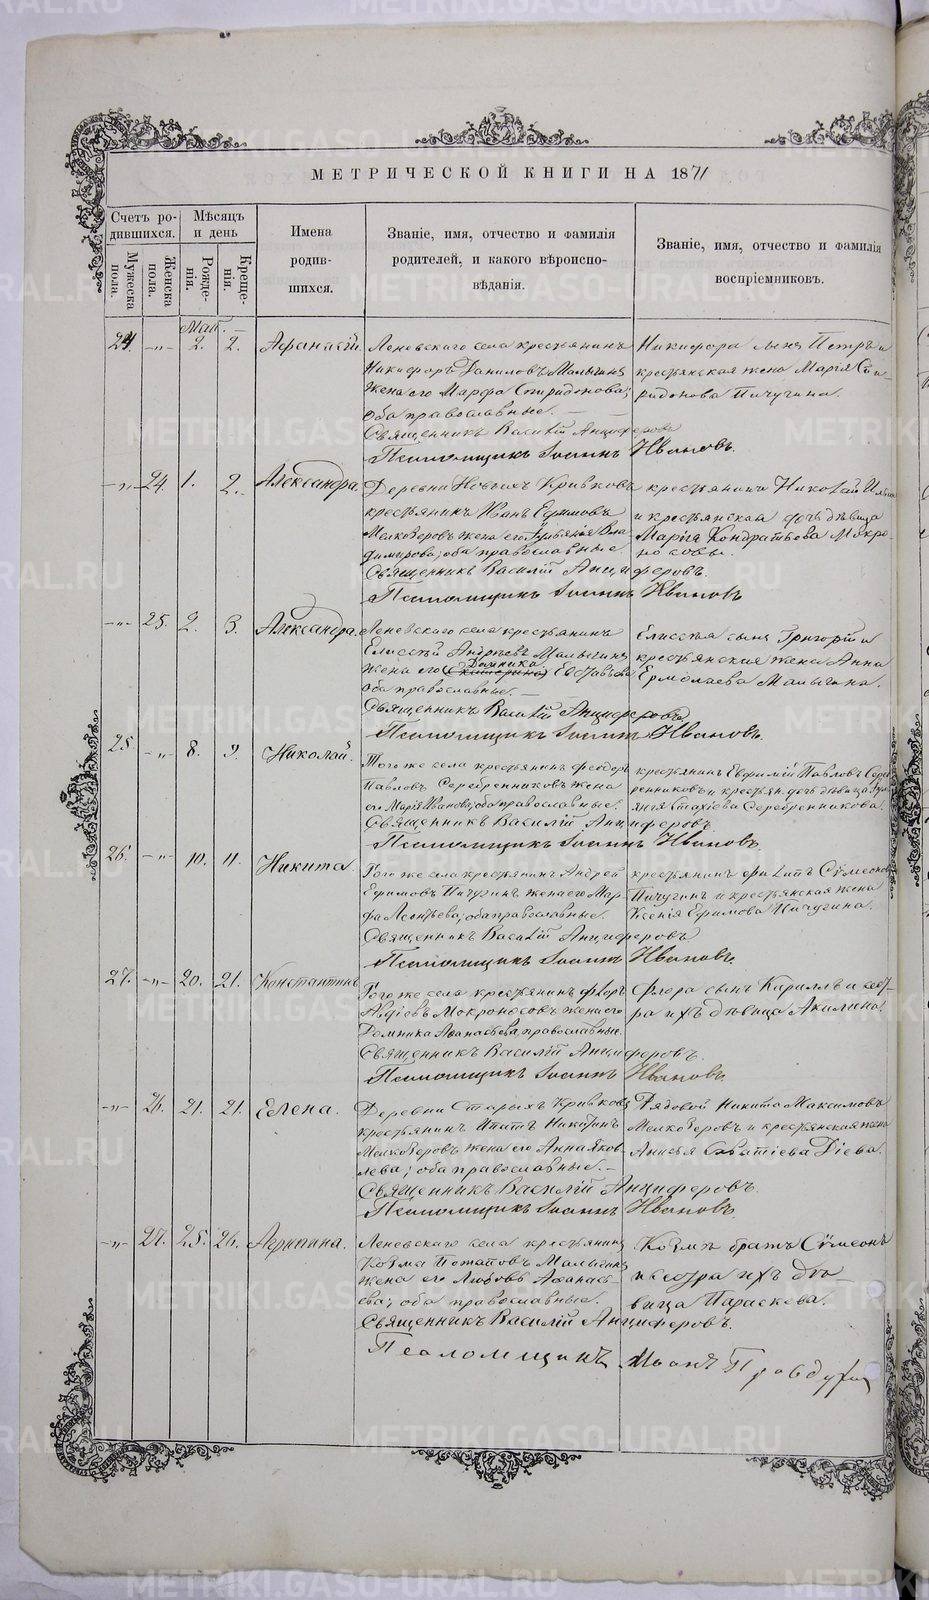 МЕТРИЧЕСКОЙ КНИГИ НА 1871
Счетъ ро-
дившихся.
Мѣсяцъ
и день
Мужеска
пола.
Женска
пола.
Рожде-
нія.
Креще-
нія.
Имена
родив-
шихся.
Званіе, имя, отчество и фамилія
родителей, и какого вѣроиспо-
вѣданія.
Званіе, имя, отчество и фамилія
воспріемниковъ.
Май.
24. -„- 2. 2. Афанасій.
Леневскаго села крестьянинъ
Никифоръ Даниловъ Малыгинъ
жена его Марфа Спиридонова;
оба православные.
Никифора сынъ Петръ и
крестьянская жена Марія Спи-
ридонова Пичугина.
Священникъ Василій Анциферовъ
Псаломщикъ Іоаннъ Ивановъ.
-„- 24. 1. 2. Александра.
Деревни Новыхъ Кривковъ
крестьянинъ Иванъ Ефимовъ
Мелкозеровъ жена его Вла-
димирова; оба православные
крестьянинъ Николай
и крестьянская дочь дѣвица
Марія Кондратьева Мокро-
носова.
Священникъ Василій Анциферовъ.
Псаломщикъ Іоаннъ Ивановъ
-„- 25. 2. 3. Александра.
Леневскаго села крестьянинъ
Елисей Андреевъ Малыгинъ
Домника
жена его (Екатерина) Евстафьева
оба православные.
Елисея сынъ Григорій и
крестьянская жена Анна
Ермолаева Малыгина.
Священникъ Василій Анциферовъ
Псаломщикъ Іоаннъ Ивановъ.
25. -„- 8. 9. Николай.
Того же села крестьянинъ Феодоръ
Павловъ Серебренниковъ жена
его Марія Иванова; оба православные.
крестьянинъ Евфимій Павловъ Сереб-
ренниковъ и крестьян. дочь дѣвица
Стахіева Серебренникова
Священникъ Василій Анциферовъ
Псаломщикъ Іоаннъ Ивановъ.
26. -„- 10. 11. Никита.
Того же села крестьянинъ Андрей
Ефимовъ Пичугинъ жена его Мар-
фа Леонтьева; оба православные.
крестьянинъ Филипъ Сѵмеоновъ
Пичугинъ и крестьянская жена
Ксенія Ефимова Пичугина.
Священникъ Василій Анциферовъ
Псаломщикъ Іоаннъ Ивановъ.
27. -„- 20. 21. Константинъ
Того же села крестьянинъ Флоръ
Мокроносовъ жена его
Домника Афанасьева, православные.
Флора сынъ Кириллъ и сест-
ра ихъ дѣвица Акилина.
Священникъ Василій Анциферовъ.
Псаломщикъ Іоаннъ Ивановъ.
-„- 26. 21. 21. Елена.
Деревни Старыхъ Кривковъ
крестьянинъ Ипатъ Никитинъ
Мелкозеровъ жена его Анна Яков-
лева; оба православные.
Рядовой Никита Максимовъ
Мелкозеровъ и крестьянская жена
Анисья Савватіева Діева.
Священникъ Василій Анциферовъ.
Псаломщикъ Іоаннъ Ивановъ.
-„- 27. 25. 26. Агрипина.
Леневскаго села крестьянинъ
Козма Потаповъ Малыгинъ
жена его Любовь Афанась-
ева; оба православные.
Козмы братъ Сѵмеонъ
и сестра ихъ дѣ-
вица Параскева.
Священникъ Василій Анциферовъ.
Псаломщикъ Іоаннъ
METRIKI.GASO-URAL.RU